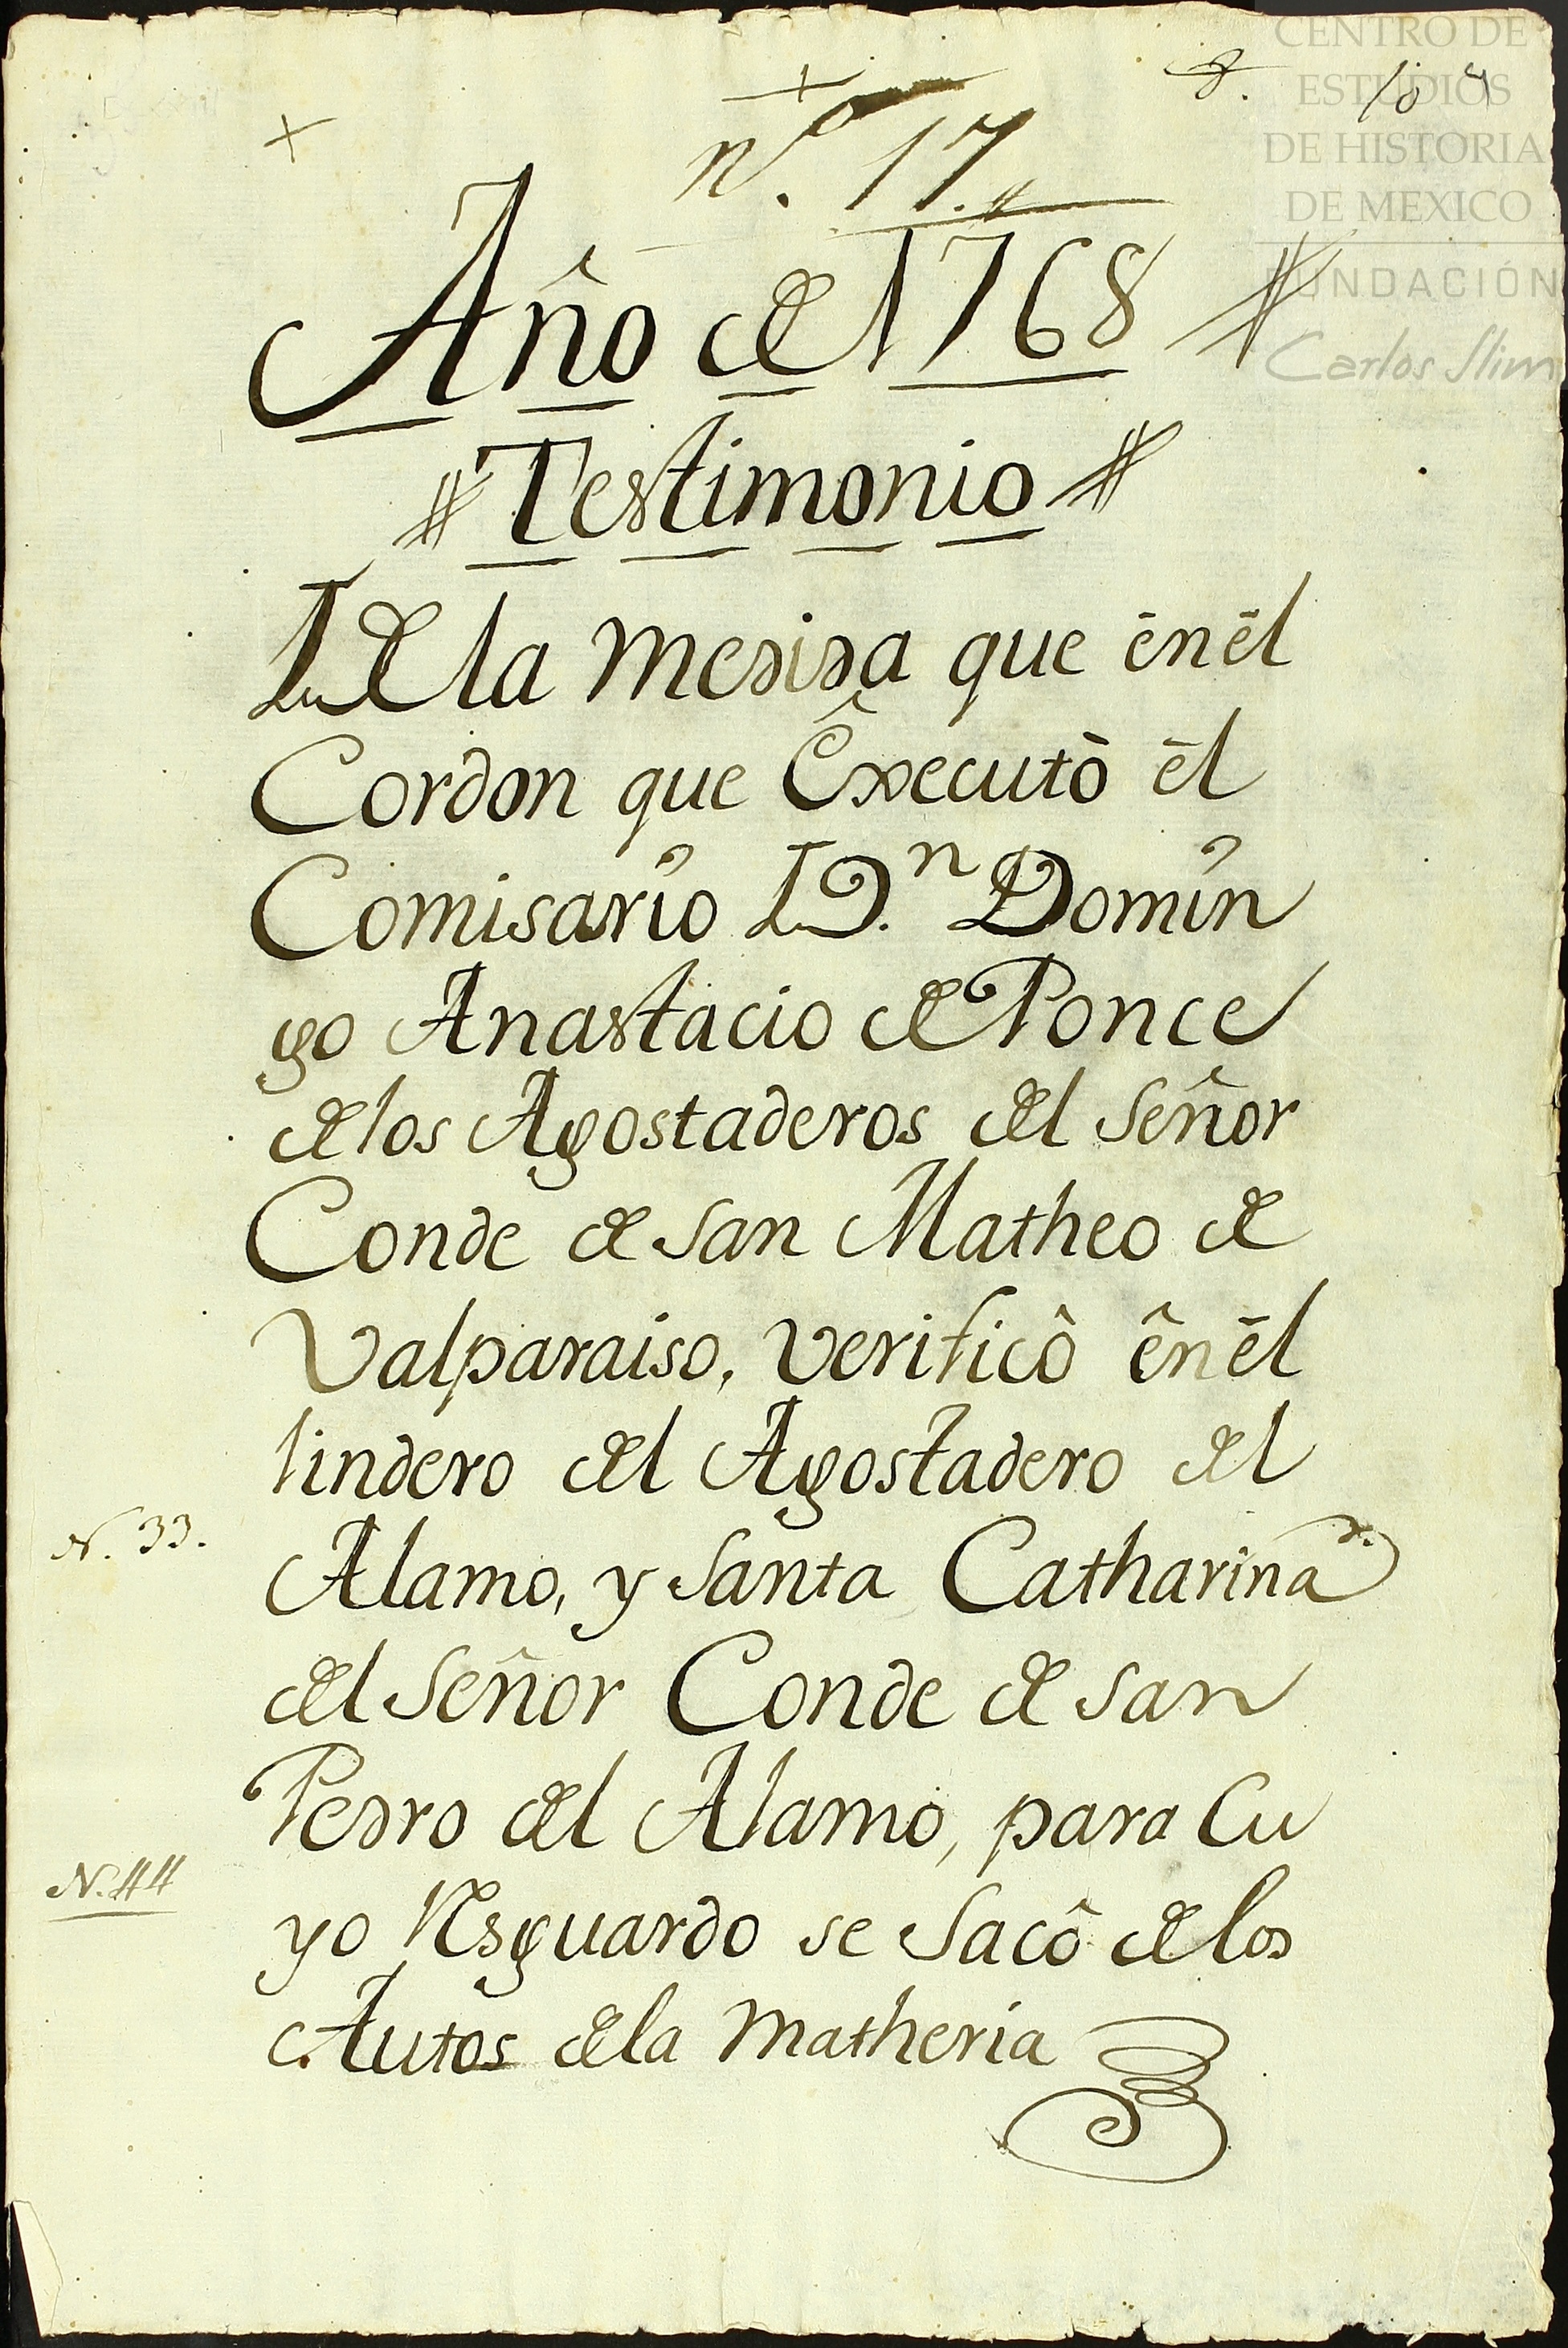 CENTRO DE
ESTUDIOS
DE HISTORIA
DE MEXICO
FUNDACIÓN
Carlos Slim
nº. 17.
Año de 1768
Testimonio
De la Medida que ēn ēl
Cordon que Êxecutò ēl
Comisario Dn. Domin
go Anastacio de Ponce
de los Agostaderos del Señor
Conde de San Matheo de
Valparaiso, Verificô ên ēl
lindero del Agostadero del
N. 33.
Alamo, y Santa Catharina
del Señor Conde de San
Pedro del Alamo, para Cu
N. 44
yo Resguardo se Sacô de los
Autos de la Matheria